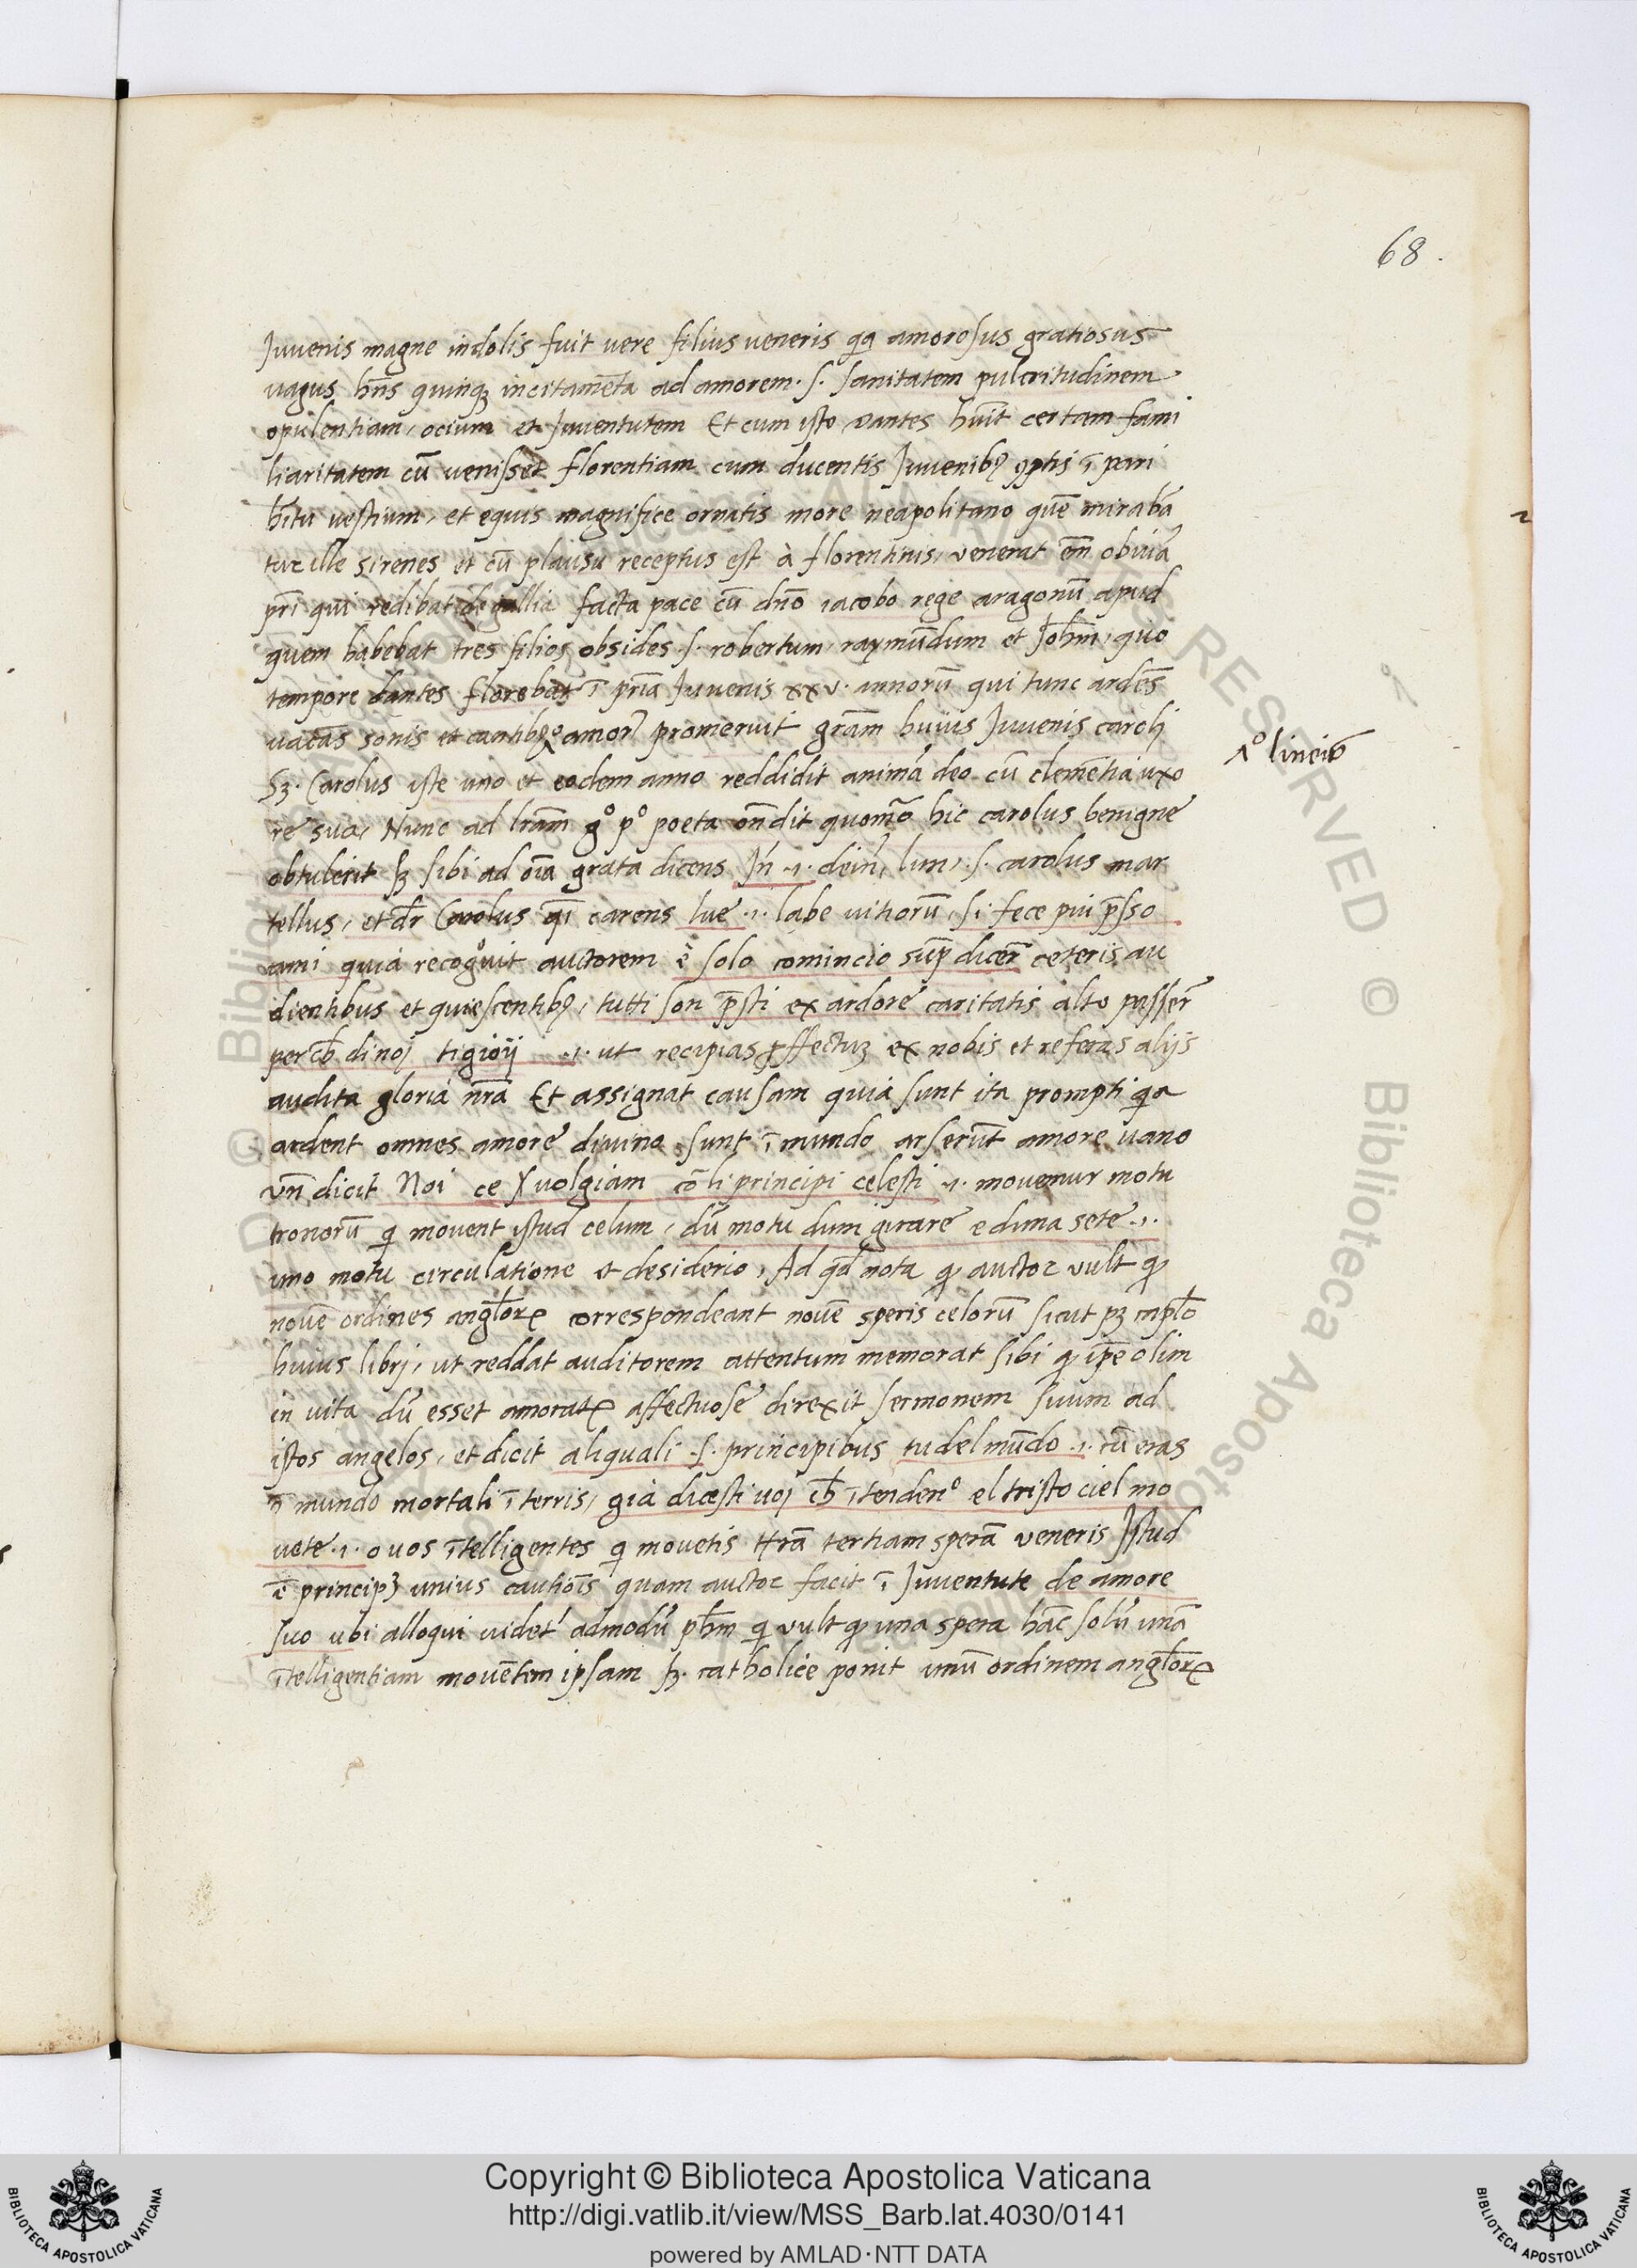 68.
Juvenis magne indolis fuit vere filius veneris q̃a amorosus gratiosus
vagus hñs quinqȝ incitamẽta ad amorem .s. sanitatem pulcritudinem
opulentiam, ocium et Juventutem Et cum isto Dantes hũit certam fami
liaritatem cũ venisset florentiam cum ducentis Juvenibꝰ ꝯptis ĩ pari
hĩtu vestium, et equis magnifice ornatis more neapolitano quẽ mirabã
tur ille sirenes et cũ plausu receptus est à florentinis, venerat em̃ obviã
pr̃i qui redibat de gallia facta pace cũ dño iacobo rege aragonũ apud
quem habebat tres filios obsides .s. robertum, raymũdum et Joh̃m, quo
tempore dantes florebat ĩ pr̃ia Juvenis xxv. annorũ qui tunc ardẽs
vacãs sonis et cantibꝰ amoꝝ promeruit gr̃am huius Juvenis caroli
1º lincio
Sȝ. Carolus iste uno et eodem anno reddidit animã deo cũ clemẽtia uxo
re sua, Nunc ad lr̃am gº pº poeta oñdit quomõ hic carolus benigne
obtulerit sȝ sibi ad oĩa grata dicens Jñ .1. dein, lun, .s. carolus mar
tellus, et dr̃ Carolus q̃i carens lue .1. labe vitiorũ, si fece piu p̃sso
ami quia recogºvit auctorem è solo comincio sup̃ dicer̃ ceteris au
dientibus et quiescentibꝰ, tutti son p̃sti ex ardore caritatis alto passer̃
per ch̃ di noj tigioij .1. ut recipias ꝓffectuȝ ex nobis et referas alijs
audita gloria nr̃a Et assignat causam quia sunt ita prompti q̃a
ardent omnes amore divino sunt ĩ mundo arserũt amore vano
vñ dicit Noi ce Xvolgiam cõ li principi celesti .1. movemur motu
tronorũ q̃ movent istud celum, dũ motu dum girare e duna sete .1.
uno motu circulatione et desiderio, Ad q̃d nota q̃ auctor vult q̃
novẽ ordines angl̃oꝝ correspondeant novẽ speris celorũ sicut pȝ inpl̃o
huius librj, ut reddat auditorem attentum memorat sibi q̃ ip̃e olim
in vita dũ esset amoratꝰ affectuose direxit sermonem suum ad
istos angelos, et dicit aliquali .s. principibus tu del mũdo .1. tũ eras
ĩ mundo mortali ĩ terris, già dicesti voj ch̃ ĩtendenº el tristo ciel mo
vete .1. o vos ĩtelligentes q̃ movetis ttr̃ã tertiam sperã veneris Jstud
ẽ principȝ unius cautiõis quam auctor facit ĩ Juventute de amore
suo ubi alloqui videt̃ admodũ ph̃m q̃ vult q̃ una spera hãc solũ unã
ĩtelligentiam movẽtem ipsam sȝ. catholice ponit unũ ordinem angl̃oꝝ
Copyright © Biblioteca Apostolica Vaticana
http://digi.vatlib.it/view/MSS_Barb.lat.4030/0141
powered by AMLAD·NTT DATA